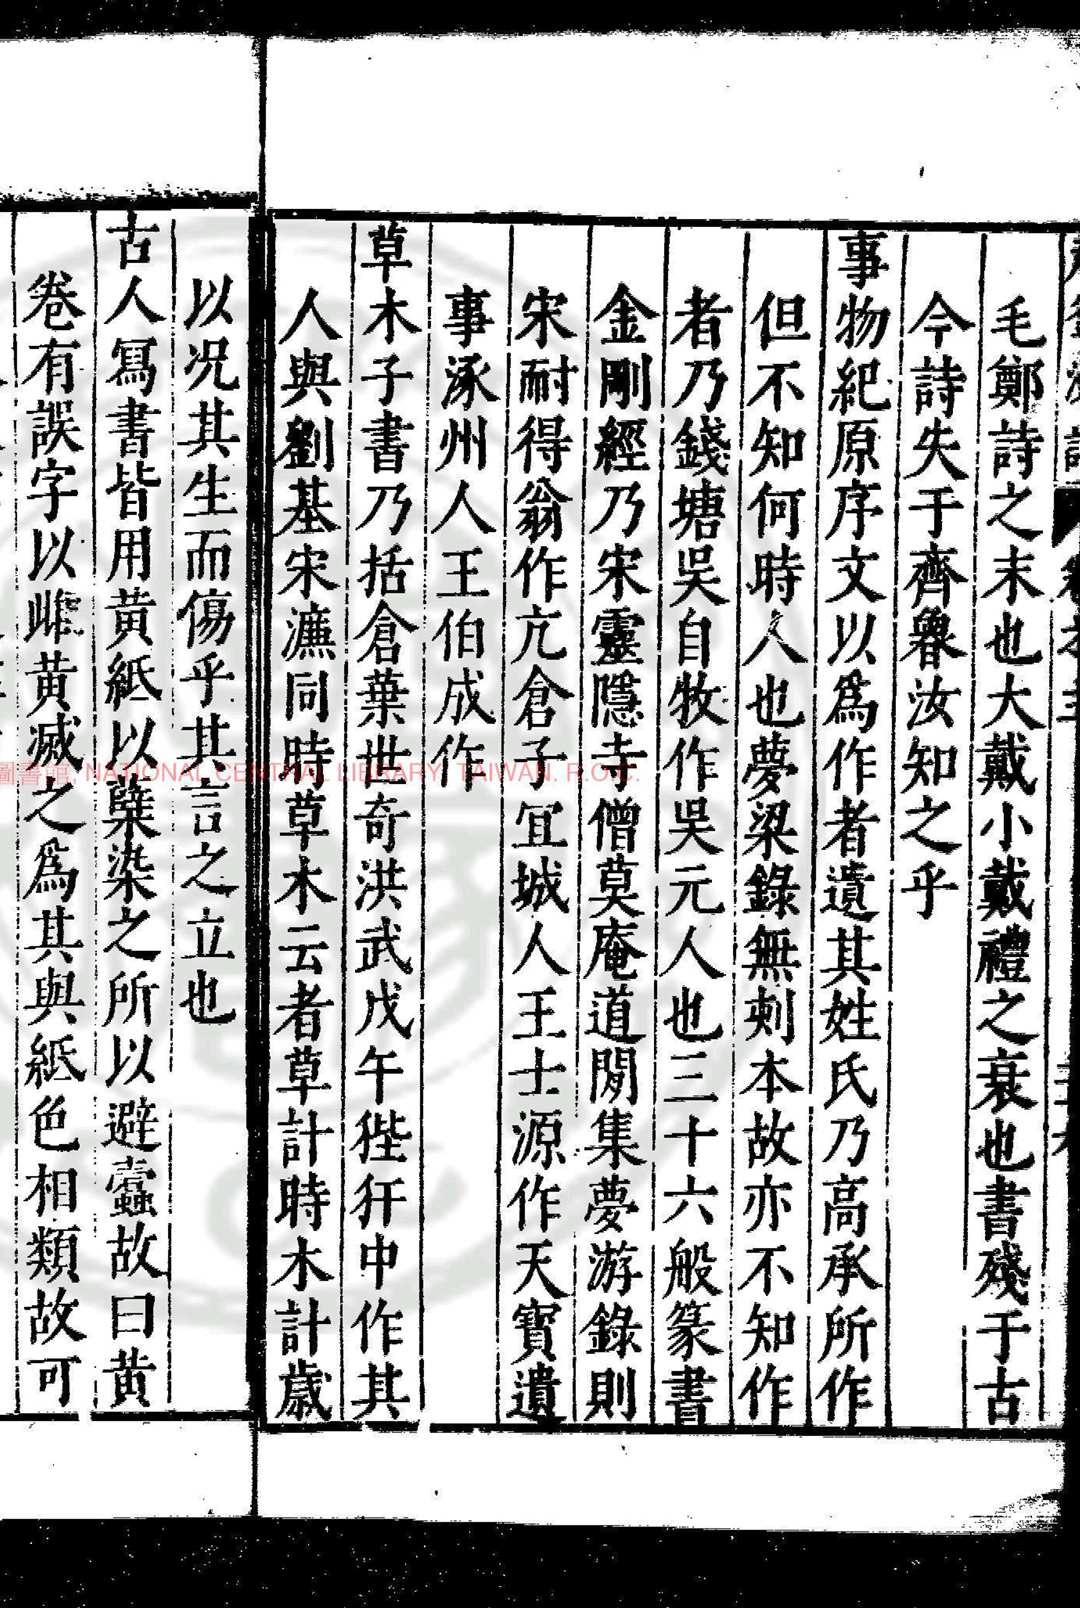 毛鄭詩之末也大戴小戴禮之衰也書殘于古
今詩失于齊魯汝知之乎
事物紀原序文以爲作者遺其姓氏乃高承所作
但不知何時人也夢梁錄無刺本故亦不知作
者乃錢塘吳自牧作吳元人也三十六般篆書
金剛經乃宋靈隱寺僧莫庵道閒集夢游錄則
宋耐得翁作亢倉子冝城人王士源作天寶遺
事涿州人王伯成作
草木子書乃括倉葉世竒洪武戊午狴犴中作其
人與劉基宋濂同時草木云者草計時木計歲
以况其生而傷乎其言之立也
古人冩書皆用黃紙以蘗染之所以避蠹故曰黃
卷有誤字以雌黃滅之爲其與紙色相類故可
圖書館, NATIONAL CENTRAL LIBRARY, TAIWAN. R.O.C.